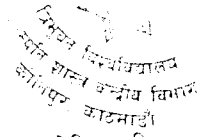 त्रिभुवन विश्वविद्यालय
शास्त्र केन्द्रीय विभाग
कीर्तिपुर, काठमाडौं